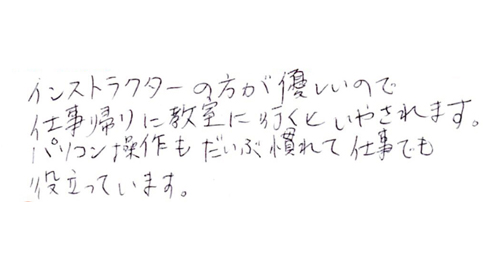 インストラクターの方が優しいので
仕事帰りに教室に行くといやされます。
パソコン操作もだいぶ慣れて仕事でも
役立っています。